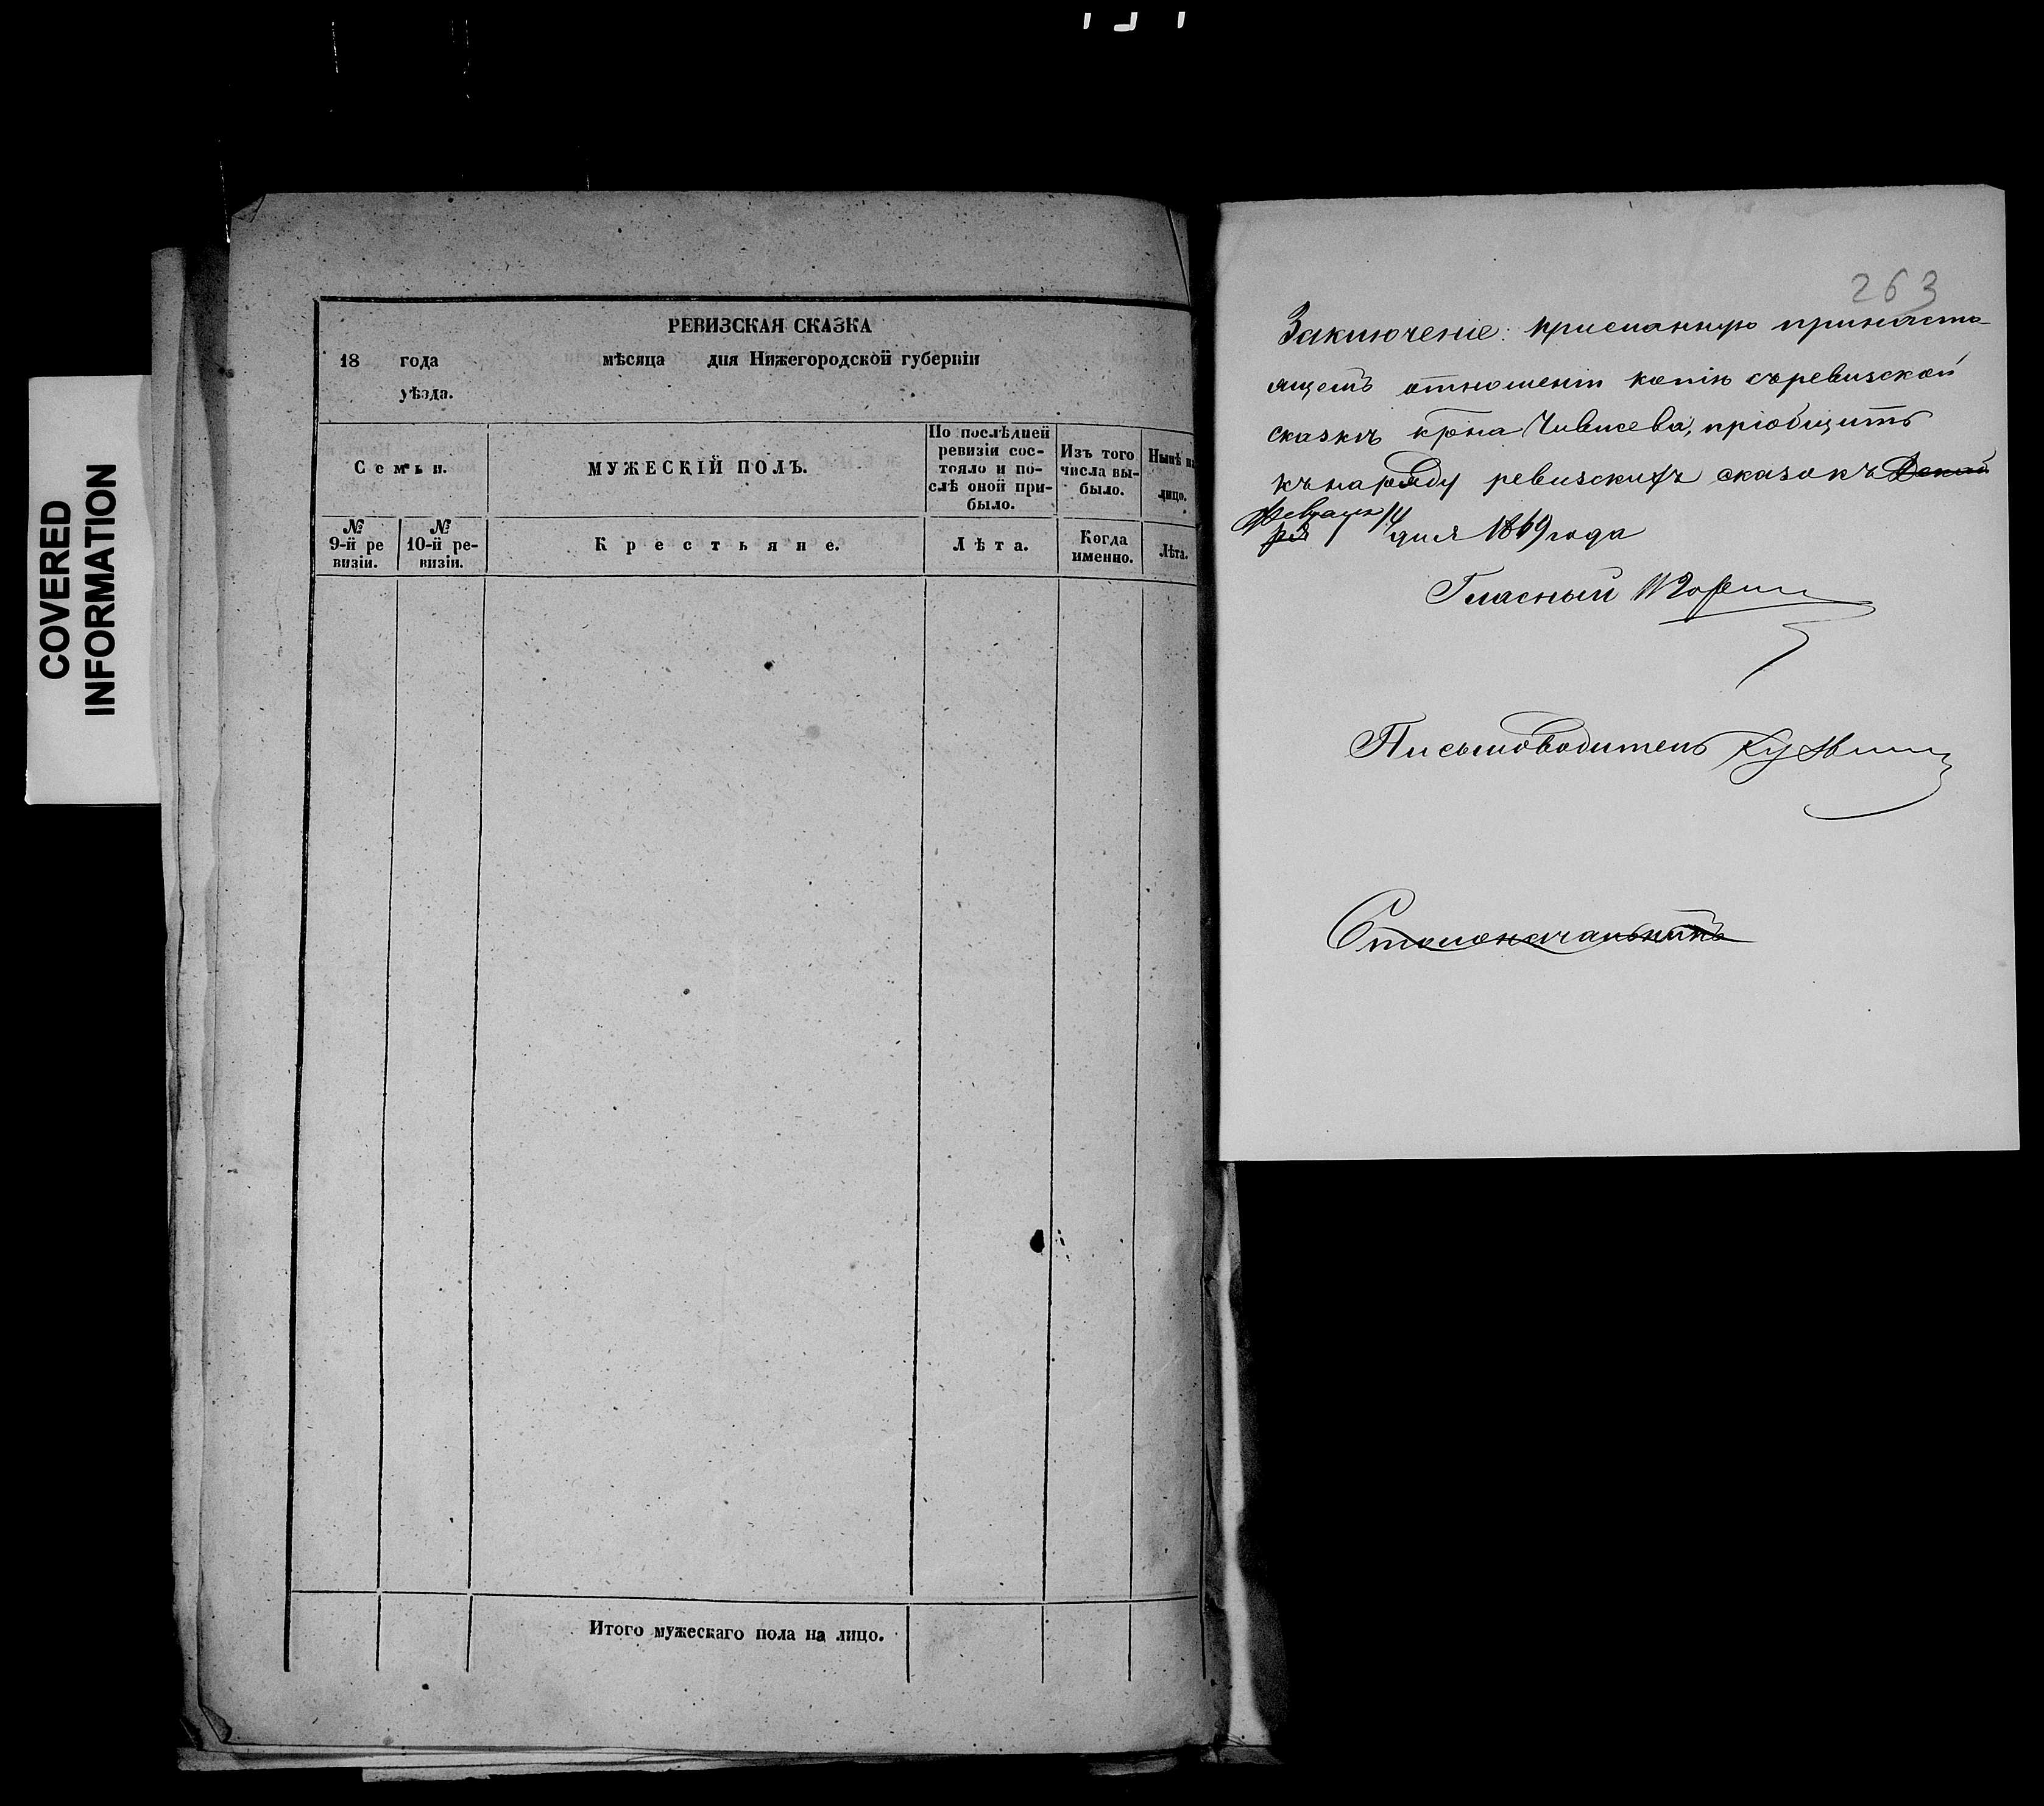 COVERED
INFORMATION
РЕВИЗСКАЯ СКАЗКА
18 года мѣсяца дня Нижегородской губерніи
уѣзда.
Семьи.
МУЖЕСКІЙ ПОЛЪ.
По послѣдней
ревизіи сос-
тояло и по-
слѣ оной при-
было.
Изъ того
числа вы-
было.
Нынѣ на
лицо.
№
9-й ре
визіи.
№
10-й ре-
визіи.
Крестьяне.
Лѣта.
Когда
именно.
Лѣта.
Итого мужескаго пола на лицо.
263
Заключеніе: присланную принасто-
ящемъ отношеніи копію съ ревизской
сказки кр-на Чивисева, пріобщить
къ наряду ревизскихъ сказокъ
февраля 14 дня 1869 года
Гласный
Письмоводитель
Столоначальникъ